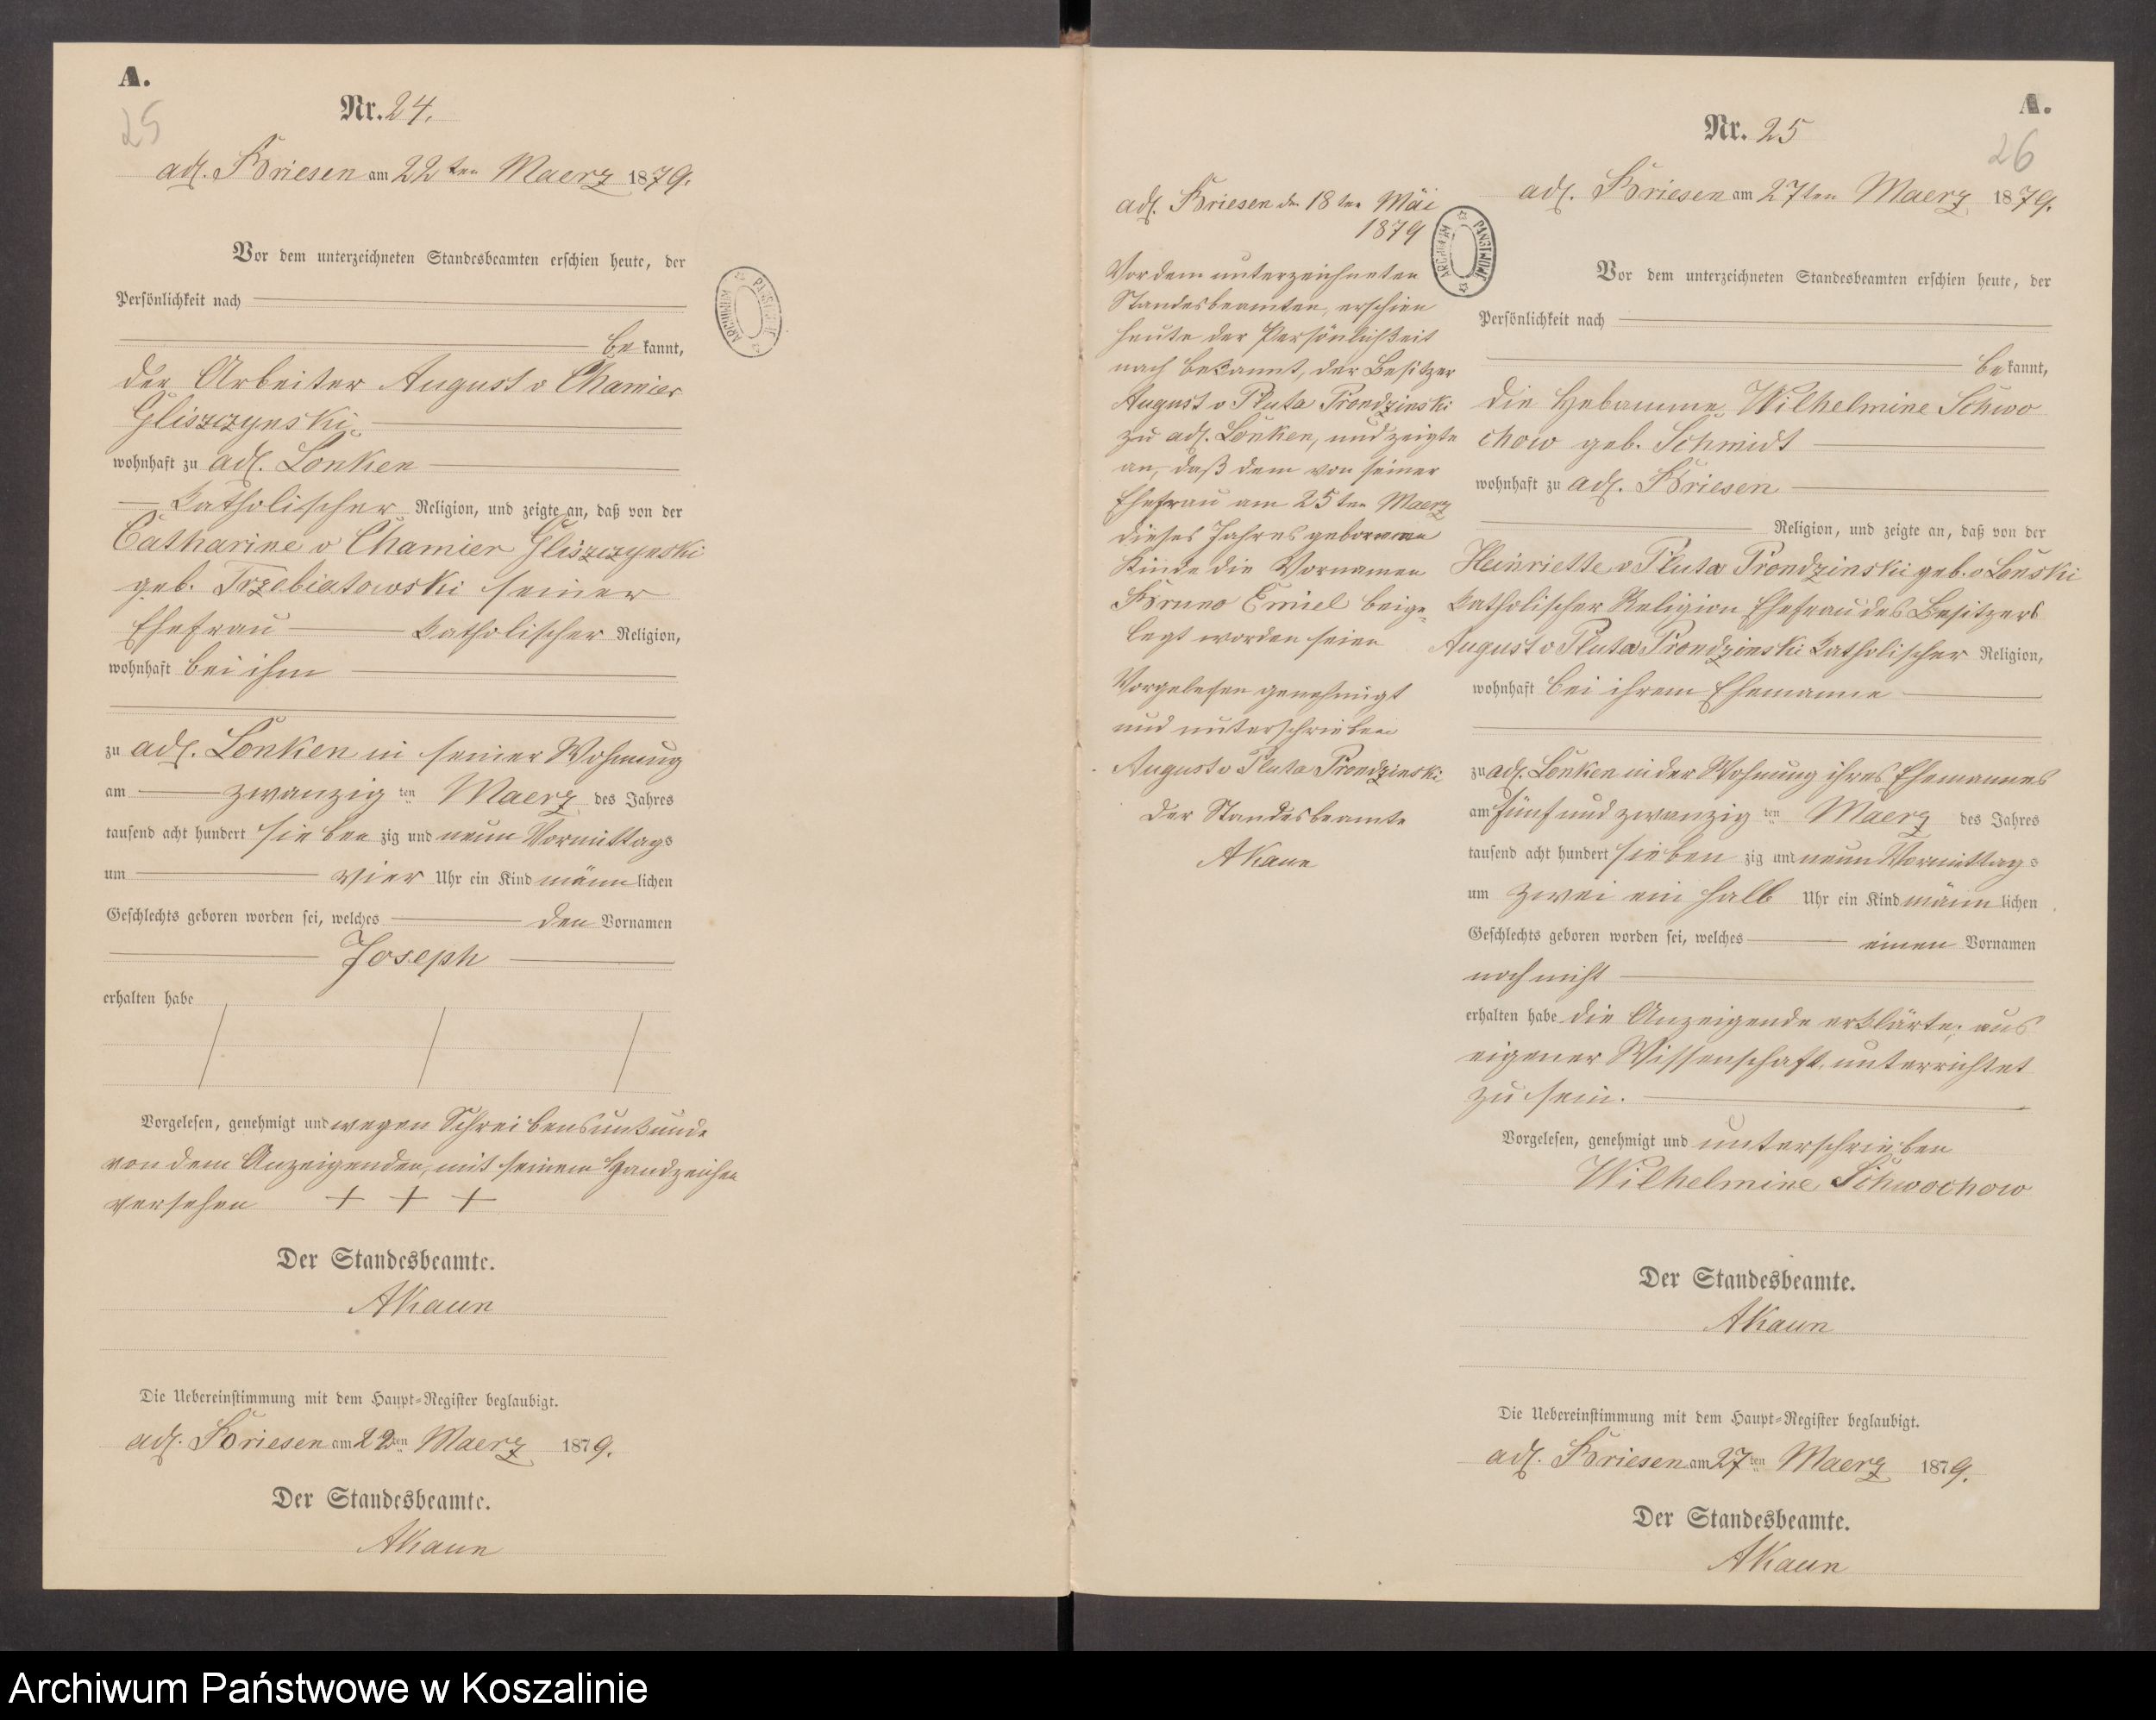 A.
25
Nr. 24.
adl. Briesen am 22ten Maerz 1879.
Vor dem unterzeichneten Standesbeamten erschien heute, der
Persönlichkeit nach
be kannt,
der Arbeiter August v Chamier
Gliszczynski
wohnhaft zu adl. Lonken
katholischer Religion, und zeigte an, daß von der
Catharine v Chamier Gliszczynski
geb. Trzebiatowski seiner
Ehefrau katholischer Religion,
wohnhaft bei ihm
zu adl. Lonken in seiner Wohnung
am zwanzig ten Maerz des Jahres
tausend acht hundert sieben zig und neun Vormittags
um vier Uhr ein Kind männ lichen
Geschlechts geboren worden sei, welches den Vornamen
Joseph
erhalten habe
Vorgelesen, genehmigt und wegen Schreibensunkunde
von dem Anzeigenden, mit seinem Handzeichen
versehen + + +
Der Standesbeamte.
AKaun
Die Uebereinstimmung mit dem Haupt-Register beglaubigt.
adl. Briesen am 22ten Maerz 1879.
Der Standesbeamte.
AKaun
ARCHIWUM PAŃSTWOWE
adl. Briesen den 18ten Mai
1879
Vor dem unterzeichneten
Standesbeamten, erschien
heute der Persönlichkeit
nach bekannt, der Besitzer
August v Pluta Prondzinski
zu adl. Lonken, und zeigte
an, daß dem von seiner
Ehefrau am 25ten Maerz
dieses Jahres geborenen
Kinde die Vornamen
Bruno Emiel beige-
legt worden seien
Vorgelesen genehmigt
und unterschrieben
August v Pluta Prondzinski
Der Standesbeamte
AKaun
ARCHIWUM PAŃSTWOWE
A.
26
Nr. 25
adl. Briesen am 27ten Maerz 1879.
Vor dem unterzeichneten Standesbeamten erschien heute, der
Persönlichkeit nach
be kannt,
die Hebamme Wilhelmine Schwo
chow geb. Schmidt
wohnhaft zu adl. Briesen
Religion, und zeigte an, daß von der
Heinriette v Pluta Prondzinski geb. v Lonski
katholischer Religion Ehefrau des Besitzers
August v Pluta Prondzinski katholischer Religion,
wohnhaft bei ihrem Ehemanne
zu adl. Lonken in der Wohnung ihres Ehemannes
am fünf und zwanzig ten Maerz des Jahres
tausend acht hundert sieben zig und neun Vormittags
um zwei ein halb Uhr ein Kind männ lichen
Geschlechts geboren worden sei, welches einen Vornamen
noch nicht
erhalten habe die Anzeigende erklärte, aus
eigener Wissenschaft unterrichtet
zu sein.
Vorgelesen, genehmigt und unterschrieben
Wilhelmine Schwochow
Der Standesbeamte.
AKaun
Die Uebereinstimmung mit dem Haupt-Register beglaubigt.
adl. Briesen am 27ten Maerz 1879.
Der Standesbeamte.
AKaun
Archiwum Państwowe w Koszalinie